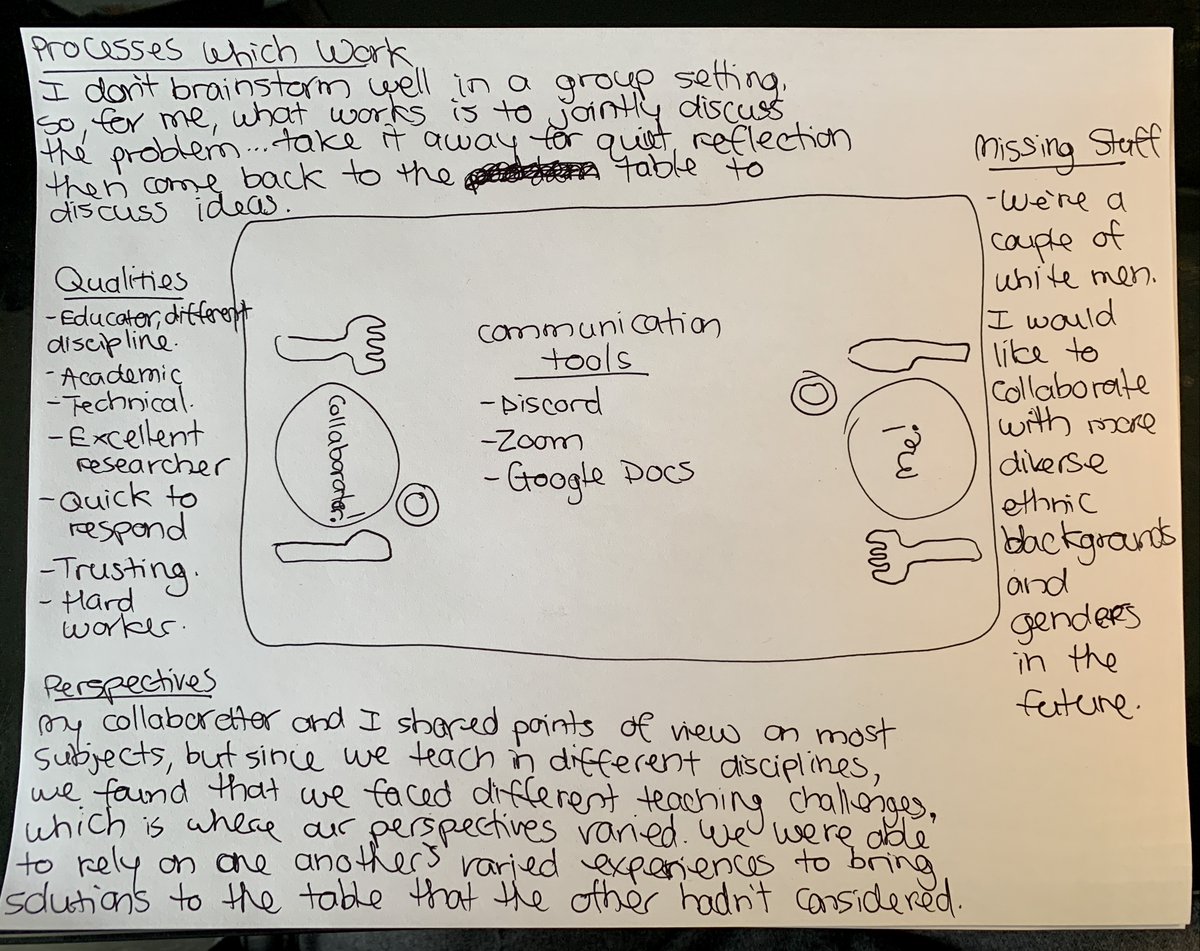 Processes which work
I don't brainstorm well in a group setting,
so, for me, what works is to jointly discuss
the problem... take it away for quiet reflection
then come back to the table to
discuss ideas.
Missing Staff
- We're a
couple of
white men.
I would
like to
collaborate
with more
diverse
ethnic
backgrounds
and
genders
in the
future.
Qualities
- Educator, different
discipline.
- Academic
- Technical.
- Excellent
researcher
- Quick to
respond
- Trusting.
- Hard
worker.
Collaborator!
communication
tools
- Discord
- Zoom
- Google Docs
me!
Perspectives
my collaboretter and I shared points of view on most
subjects, but since we teach in different disciplines,
we found that we faced different teaching challenges,
which is where our perspectives varied. We were able
to rely on one another's varied experiences to bring
solutions to the table that the other hadn't considered.